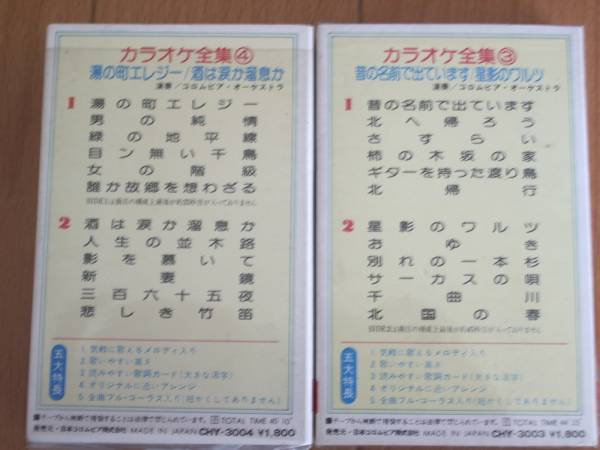 カラオケ全集④
湯の町エレジー/酒は涙か溜息か
演奏/コロムビア・オーケストラ
1 湯の町エレジー
男の純情
緑の地平線
目ン無い千鳥
女の階級
誰か故郷を想わざる
2 酒は涙か溜息か
人生の並木路
影を慕いて
新妻鏡
三百六十五夜
悲しき竹笛
五大特長
1 気軽に歌えるメロディ入り
2 歌いやすい高さ
3 読みやすい歌詞カード(大きな活字)
4 オリジナルに近いアレンジ
5 全曲フル・コーラス入り(短かくしてありません)
■テープから無断で複製することは法律で禁じられています。 TOTAL TIME 45'10"
発売元・日本コロムビア株式会社 MADE IN JAPAN CHY-3004 ¥1,800
カラオケ全集③
昔の名前で出ています/星影のワルツ
演奏/コロムビア・オーケストラ
1 昔の名前で出ています
北へ帰ろう
さすらい
柿の木坂の家
ギターを持った渡り鳥
北帰行
2 星影のワルツ
おゆき
別れの一本杉
サーカスの唄
千曲川
北国の春
五大特長
1 気軽に歌えるメロディ入り
2 歌いやすい高さ
3 読みやすい歌詞カード(大きな活字)
4 オリジナルに近いアレンジ
5 全曲フル・コーラス入り(短かくしてありません)
■テープから無断で複製することは法律で禁じられています。 TOTAL TIME 44
発売元・日本コロムビア株式会社 MADE IN JAPAN CHY-3003 ¥1,800